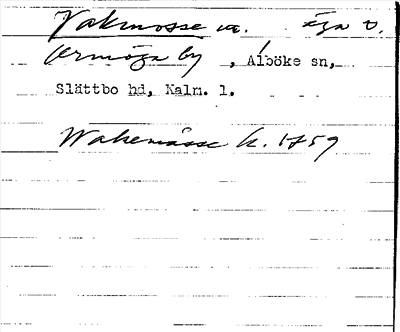 Vakmosse m. äga v.
Ormöga by, Alböke sn,
Slättbo hd, Kalm. l.
Wakemåsse k. 1759